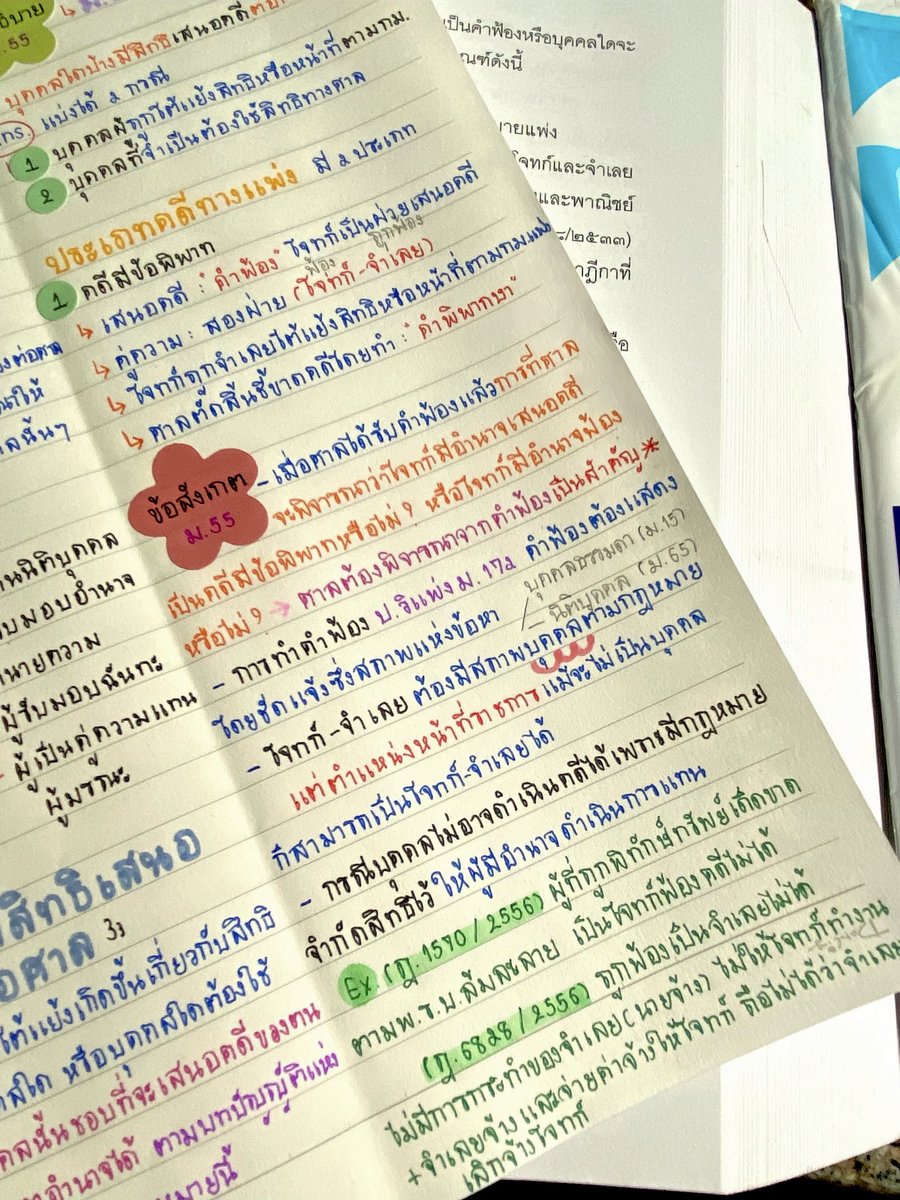 อธิบาย
ม.55
บุคคลใดบ้างมีสิทธิเสนอคดีต่อ
แบ่งได้ 2 กรณี
1 บุคคลผู้ถูกโต้แย้งสิทธิหรือหน้าที่ตามกม.
2 บุคคลที่จำเป็นต้องใช้สิทธิทางศาล
ประเภทคดีทางแพ่ง มี 2 ประเภท
1 คดีมีข้อพิพาท
↳ เสนอคดี : "คำฟ้อง" โจทก์เป็นฝ่ายเสนอคดี
ฟ้อง ถูกฟ้อง
↳ คู่ความ : สองฝ่าย (โจทก์-จำเลย)
↳ โจทก์ถูกจำเลยโต้แย้งสิทธิหรือหน้าที่ตามกม.แพ่ง
↳ ศาลตัดสินชี้ขาดคดีโดยทำ : "คำพิพากษา"
ข้อสังเกต
ม.55
- เมื่อศาลได้รับคำฟ้องแล้วการที่ศาล
จะพิจารณาว่าโจทก์มีอำนาจเสนอคดี
เป็นคดีมีข้อพิพาทหรือไม่? หรือโจทก์มีอำนาจฟ้อง
หรือไม่? → ศาลต้องพิจารณาจากคำฟ้องเป็นสำคัญ*
- การทำคำฟ้อง ป.วิแพ่ง ม.172 คำฟ้องต้องแสดง
โดยชัดแจ้งซึ่งสภาพแห่งข้อหา
บุคคลธรรมดา (ม.15)
- นิติบุคคล (ม.65)
- โจทก์-จำเลย ต้องมีสภาพบุคคลตามกฎหมาย
แต่ตำแหน่งหน้าที่ราชการ แม้จะไม่เป็นบุคคล
ก็สามารถเป็นโจทก์-จำเลยได้
- กรณีบุคคลไม่อาจดำเนินคดีได้เพราะมีกฎหมาย
จำกัดสิทธิไว้ ให้ผู้มีอำนาจดำเนินการแทน
Ex (ฎ.1570/2556) ผู้ที่ถูกพิทักษ์ทรัพย์เด็ดขาด
ตามพ.ร.บ.ล้มละลาย เป็นโจทก์ฟ้องคดีไม่ได้
ถูกฟ้องเป็นจำเลยไม่ได้
(ฎ.6828/2556)
ไม่มีการกระทำของจำเลย(นายจ้าง) ไม่ให้โจทก์ทำงาน
+จำเลยจ้าง และจ่ายค่าจ้างให้โจทก์ ถือไม่ได้ว่าจำเลย
เลิกจ้างโจทก์
องต่อศาล
ลนั้นๆ
นนิติบุคคล
ับมอบอำนาจ
นายความ
ผู้รับมอบฉันทะ
ผู้เป็นคู่ความแทน
ผู้มรณะ
สิทธิเสนอ
อศาล
โต้แย้งเกิดขึ้นเกี่ยวกับสิทธิ
หรือบุคคลใดต้องใช้
คลนั้นชอบที่จะเสนอคดีของตน
อำนาจได้ ตามบทบัญญัติแห่ง
หมายนี้
เป็นคำฟ้องหรือบุคคลใดจะ
ณฑ์ดังนี้
มายแพ่ง
โจทก์และจำเลย
และพาณิชย์
๘/๒๕๓๓)
าฎีกาที่
รือ